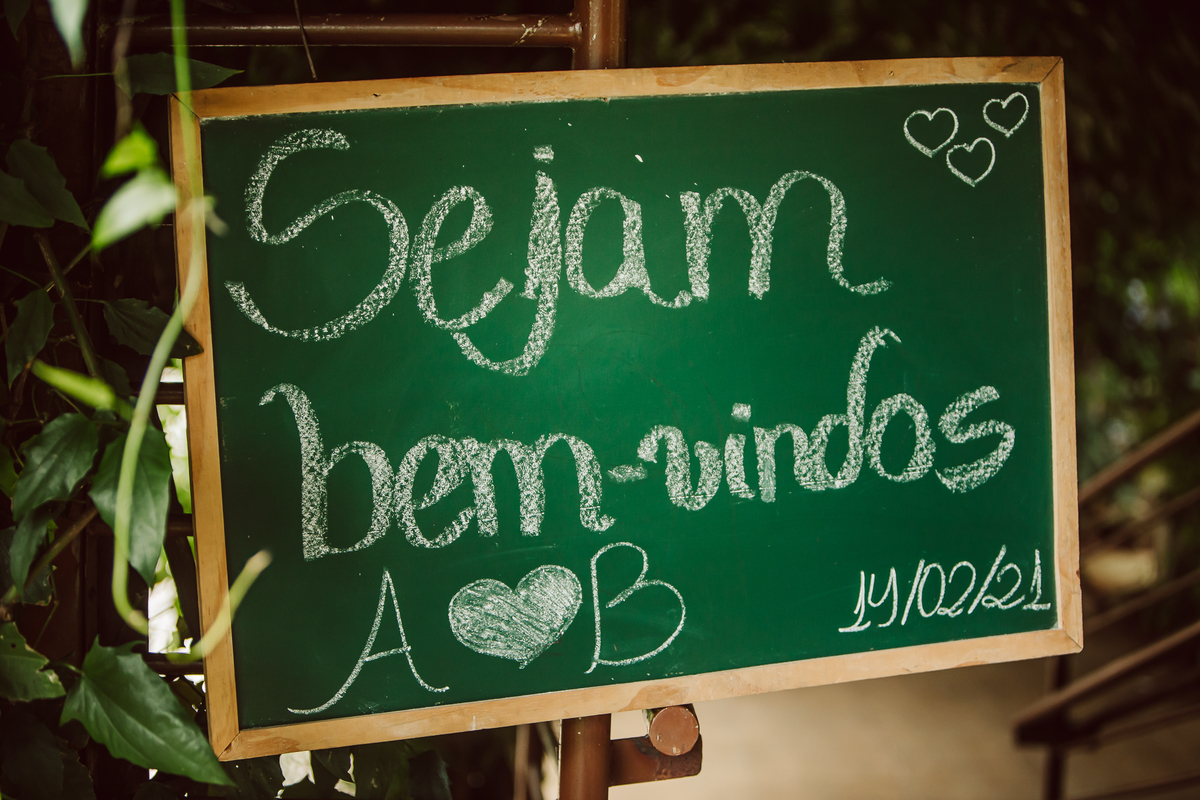 Sejam
bem-vindos
A B
14/02/21